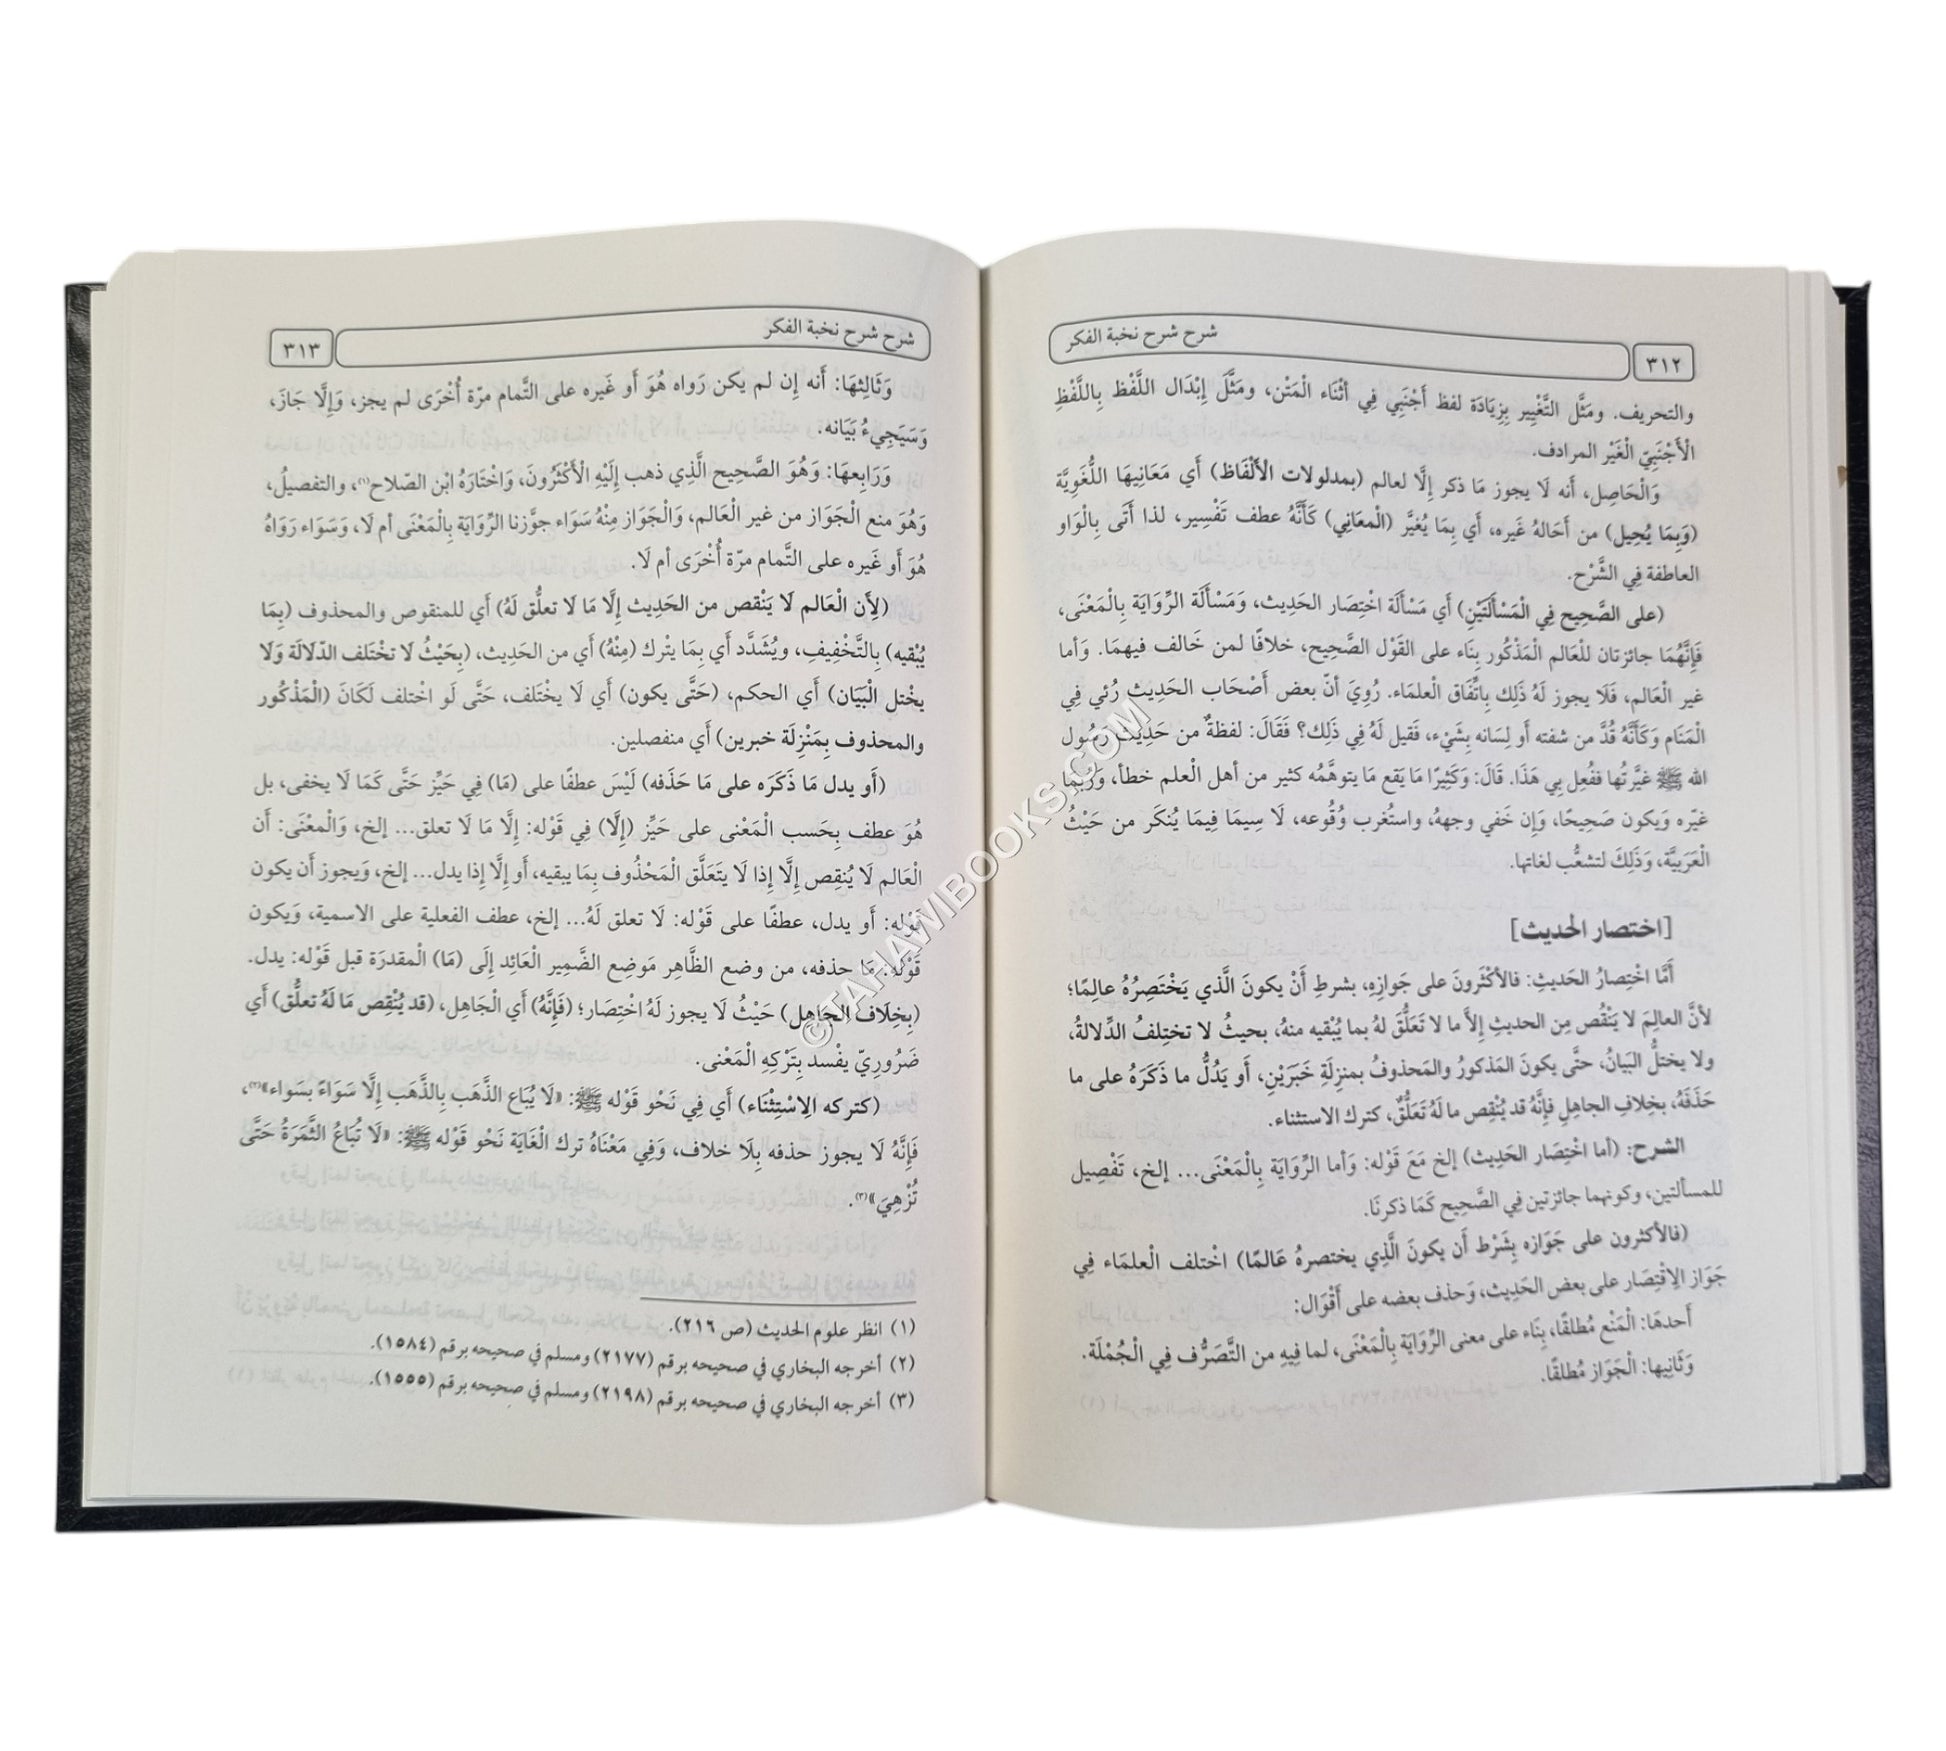 ٣١٢
شرح شرح نخبة الفكر
والتحريف. ومَثَّل التَّغْيِير بِزِيَادَة لفظ أَجْنَبِي فِي أَثْنَاء الْمَتْن، ومَثَّلَ إِبْدَال اللَّفْظ بِاللَّفْظِ
الْأَجْنَبِيّ الْغَيْر المرادف.
وَالْحَاصِل، أنه لَا يجوز مَا ذكر إِلَّا لعالم (بمدلولات الْأَلْفَاظ) أَي مَعَانِيهَا اللُّغَوِيَّة
(وَبِمَا يُحِيل) من أَحَالهُ غَيره، أَي بِمَا يُغيَّر (الْمعَانِي) كَأَنَّهُ عطف تَفْسِير، لذا أَتَى بِالْوَاو
العاطفة فِي الشَّرْح.
(على الصَّحِيح فِي الْمَسْأَلَتَيْنِ) أَي مَسْأَلَة اخْتِصَار الحَدِيث، وَمَسْأَلَة الرِّوَايَة بِالْمَعْنَى،
فَإِنَّهُمَا جائزتان للْعَالم الْمَذْكُور بِنَاء على القَوْل الصَّحِيح، خلافًا لمن خَالف فيهمَا. وَأما
غير الْعَالم، فَلَا يجوز لَهُ ذَلِك بِاتِّفَاق الْعلمَاء. رُوِيَ أنّ بعض أَصْحَاب الحَدِيث رُئي فِي
الْمَنَام وَكَأَنَّهُ قُدَّ من شفته أَو لِسَانه بِشَيْء، فَقيل لَهُ فِي ذَلِك؟ فَقَالَ: لفظةٌ من حَدِيث رَسُول
الله ﷺ غيَّرتُها ففُعِل بِي هَذَا. قَالَ: وَكَثِيرًا مَا يَقع مَا يتوهَّمُه كثير من أهل الْعلم خطأ، وَرُبمَا
غيّره وَيكون صَحِيحًا، وَإِن خَفي وجههُ، واستُغرب وُقُوعه، لَا سِيمَا فِيمَا يُنكَر من حَيْثُ
الْعَرَبيَّة، وَذَلِكَ لتشعُّب لغاتها.
[اختصار الحديث]
أَمَّا اخْتِصارُ الحَديثِ: فالأكْثَرونَ على جَوازِهِ، بشرطِ أَنْ يكونَ الَّذي يَخْتَصِرُهُ عالِمًا؛
لأنَّ العالِمَ لا يَنْقُص مِن الحديثِ إِلَّا ما لا تَعَلُّقَ لهُ بما يُبْقيه منهُ، بحيثُ لا تختِلفُ الدِّلالةُ،
ولا يختلُّ البَيانُ، حتَّى يكونَ المَذكورُ والمَحذوفُ بمنزِلَةِ خَبَرَيْنِ، أَو يَدُلُّ ما ذَكَرَهُ على ما
حَذَفَهُ، بخِلافِ الجاهِلِ فإِنَّهُ قد يُنْقِص ما لَهُ تَعَلُّقٌ، كترك الاستثناء.
الشرح: (أما اخْتِصَار الحَدِيث) إلخ مَعَ قَوْله: وَأما الرِّوَايَة بِالْمَعْنَى... إلخ، تَفْصِيل
للمسألتين، وكونهما جائزتين فِي الصَّحِيح كَمَا ذكرنَا.
(فالأكثرون على جَوَازه بِشَرْط أَن يكونَ الَّذِي يختصرهُ عَالما) اخْتلف الْعلمَاء فِي
جَوَاز الِاقْتِصَار على بعض الحَدِيث، وَحذف بعضه على أَقْوَال:
أَحدهَا: الْمَنْع مُطلقًا، بِنَاء على معنى الرِّوَايَة بِالْمَعْنَى، لما فِيهِ من التَّصَرُّف فِي الْجُمْلَة.
وَثَانِيها: الْجَوَاز مُطلقًا.
شرح شرح نخبة الفكر
٣١٣
وَثَالِثهَا: أَنه إِن لم يكن رَواه هُوَ أَو غَيره على التَّمام مرّة أُخْرَى لم يجز، وَإِلَّا جَازَ،
وَسَيَجِيءُ بَيَانه.
وَرَابِعهَا: وَهُوَ الصَّحِيح الَّذِي ذهب إِلَيْهِ الْأَكْثَرُونَ، وَاخْتَارَهُ ابْن الصّلاح(١)، والتفصيلُ،
وَهُوَ منع الْجَوَاز من غير الْعَالم، وَالْجَواز مِنْهُ سَوَاء جوّزنا الرِّوَايَة بِالْمَعْنَى أم لَا، وَسَوَاء رَوَاهُ
هُوَ أَو غَيره على التَّمام مرّة أُخْرَى أم لَا.
(لِأَن الْعَالم لَا يَنْقص من الحَدِيث إِلَّا مَا لَا تعلُّق لَهُ) أَي للمنقوص والمحذوف (بِمَا
يُبْقيه) بِالتَّخْفِيفِ، ويُشَدَّد أَي بِمَا يتْرك (مِنْهُ) أَي من الحَدِيث، (بِحَيْثُ لَا تخْتَلف الدّلَالَة وَلَا
يخْتل الْبَيَان) أَي الحكم، (حَتَّى يكون) أَي لَا يخْتَلف، حَتَّى لَو اخْتلف لَكَانَ (الْمَذْكُور
والمحذوف بِمَنْزِلَة خبرين) أَي منفصلين.
(أَو يدل مَا ذَكَرَه على مَا حَذَفه) لَيْسَ عطفًا على (مَا) فِي حَيِّز حَتَّى كَمَا لَا يخفى، بل
هُوَ عطف بِحَسب الْمَعْنى على حَيِّز (إِلَّا) فِي قَوْله: إِلَّا مَا لَا تعلق... إلخ، وَالْمعْنَى: أَن
الْعَالم لَا يُنْقِص إِلَّا إِذا لَا يتَعَلَّق الْمَحْذُوف بِمَا يبقيه، أَو إِلَّا إِذا يدل... إلخ، وَيجوز أَن يكون
قَوْله: أَو يدل، عطفًا على قَوْله: لَا تعلق لَهُ... إلخ، عطف الفعلية على الاسمية، وَيكون
قَوْله: مَا حذفه، من وضع الظَّاهِر مَوضِع الضَّمِير الْعَائِد إِلَى (مَا) الْمقدرَة قبل قَوْله: يدل.
(بِخِلَاف الجَاهِل) حَيْثُ لَا يجوز لَهُ اخْتِصَار؛ (فَإِنَّهُ) أَي الْجَاهِل، (قد يُنْقِص مَا لَهُ تعلُّق) أَي
ضَرُورِيّ يفْسد بِتَرْكِهِ الْمَعْنى.
(كتركه الِاسْتِثْنَاء) أَي فِي نَحْو قَوْله ﷺ: «لَا يُبَاع الذَّهَب بِالذَّهَب إِلَّا سَوَاءً بسَواء»(٢)،
فَإِنَّهُ لَا يجوز حذفه بِلَا خلاف، وَفِي مَعْنَاهُ ترك الْغَايَة نَحْو قَوْله ﷺ: «لَا تُبَاعُ الثَّمَرَةُ حَتَّى
تُزْهِيَ»(٣).
(١) انظر علوم الحديث (ص ٢١٦).
(٢) أخرجه البخاري في صحيحه برقم (٢١٧٧) ومسلم في صحيحه برقم (١٥٨٤).
(٣) أخرجه البخاري في صحيحه برقم (٢١٩٨) ومسلم في صحيحه برقم (١٥٥٥).
© TAHAWIBOOKS.COM